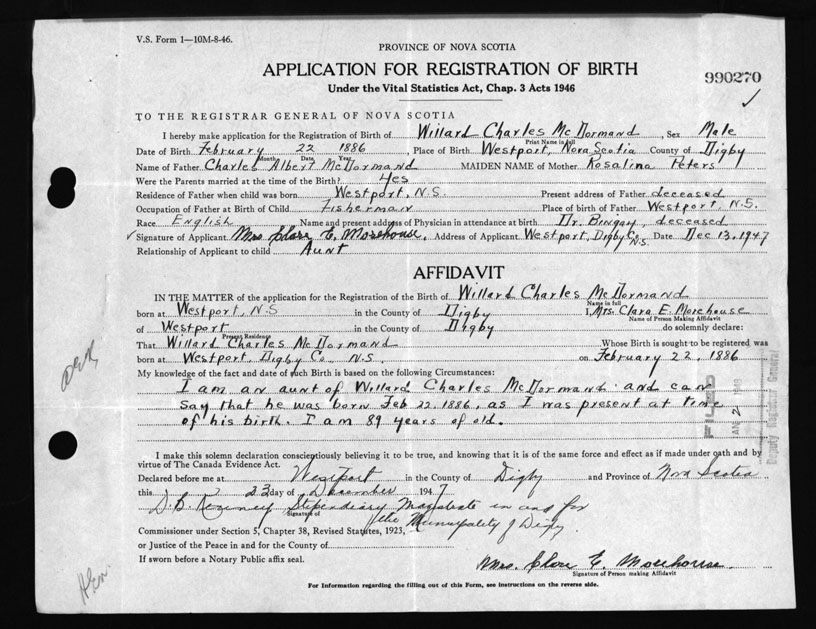 V.S. Form 1—10M-8-46.
PROVINCE OF NOVA SCOTIA
APPLICATION FOR REGISTRATION OF BIRTH
990270
Under the Vital Statistics Act, Chap. 3 Acts 1946
✓
TO THE REGISTRAR GENERAL OF NOVA SCOTIA
I hereby make application for the Registration of Birth of Willard Charles McDormand, Sex Male
Print Name in full
Date of Birth February 22 1886, Place of Birth Westport, Nova Scotia County of Digby
Month Date Year
Name of Father Charles Albert McDormand MAIDEN NAME of Mother Rosalina Peters
Were the Parents married at the time of the Birth? Yes
Residence of Father when child was born Westport, N.S. Present address of Father deceased
Occupation of Father at Birth of Child Fisherman Place of birth of Father Westport, N.S.
Race English Name and present address of Physician in attendance at birth Dr. Bingay, deceased
✓ Signature of Applicant Mrs Clara E. Morehouse. Address of Applicant Westport, Digby Co. N.S. Date Dec 13, 1947
Relationship of Applicant to child Aunt
AFFIDAVIT
IN THE MATTER of the application for the Registration of the Birth of Willard Charles McDormand
Name in full
born at Westport, N.S in the County of Digby I, Mrs. Clara E. Morehouse
Name of Person Making Affidavit
of Westport in the County of Digby do solemnly declare:
Present Residence
That Willard Charles McDormand Whose Birth is sought to be registered was
born at Westport, Digby Co., N.S. on February 22, 1886
My knowledge of the fact and date of such Birth is based on the following Circumstances:
I am an aunt of Willard Charles McDormand and can
say that he was born Feb 22, 1886, as I was present at time
of his birth. I am 89 years of old.
FILED
JAN 2
Deputy Registrar General
I make this solemn declaration conscientiously believing it to be true, and knowing that it is of the same force and effect as if made under oath and by
virtue of The Canada Evidence Act.
Declared before me at Westport in the County of Digby and Province of Nova Scotia
this 23 day of December 1947
Stipendiary Magistrate in and for
Signature of
the Municipality of Digby
Commissioner under Section 5, Chapter 38, Revised Statutes, 1923,
or Justice of the Peace in and for the County of
If sworn before a Notary Public affix seal.
Mrs. Clara E. Morehouse
Signature of Person making Affidavit
For Information regarding the filling out of this Form, see instructions on the reverse side.